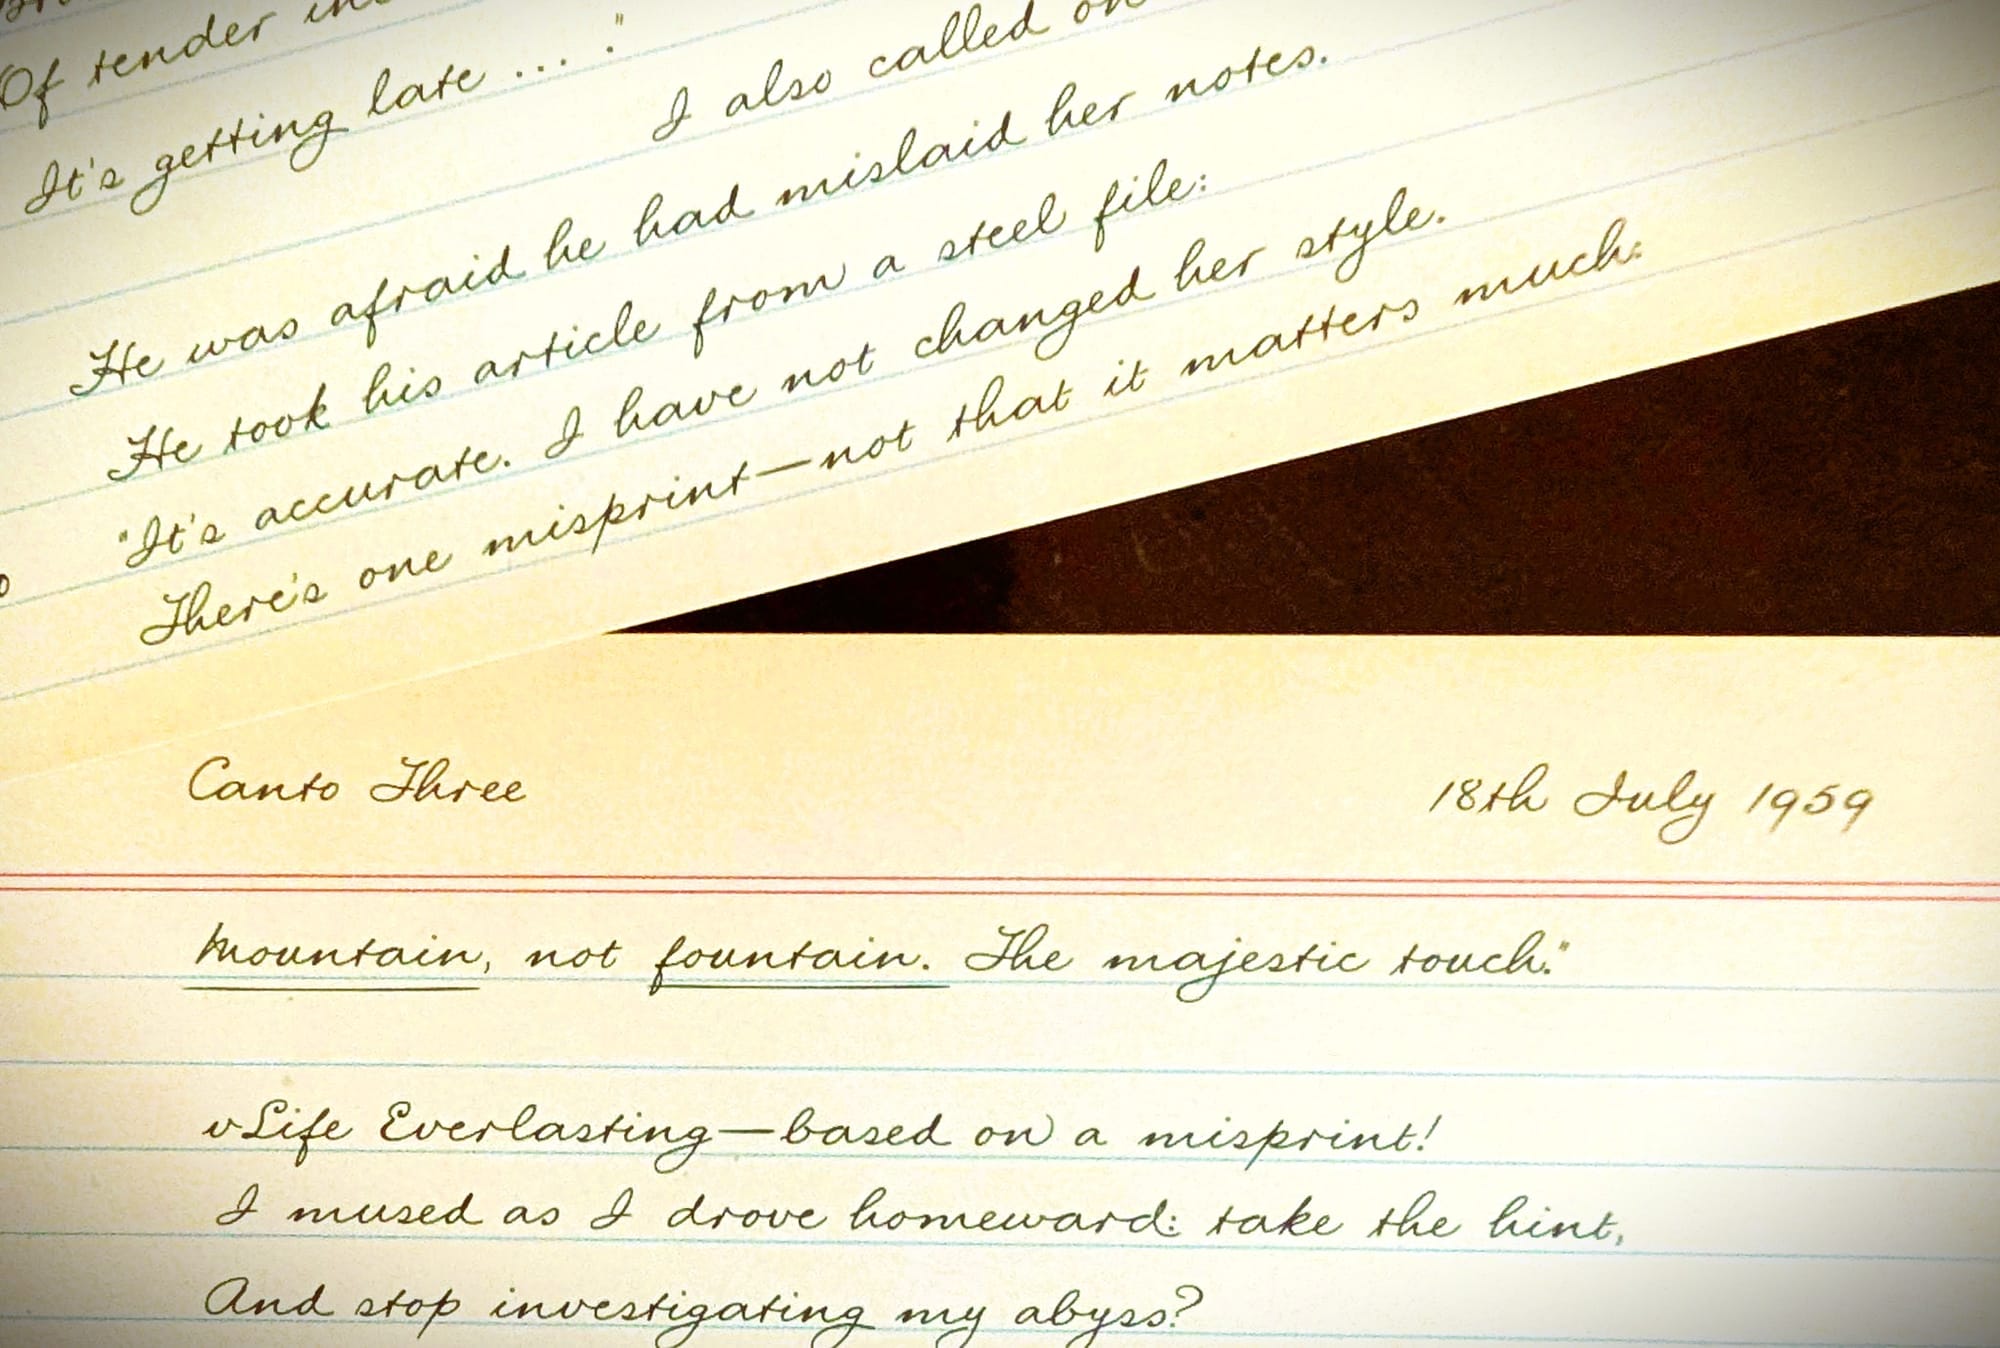 Of tender
It's getting late ... ."
I also called on
He was afraid he had mislaid her notes.
He took his article from a steel file:
"It's accurate. I have not changed her style.
There's one misprint—not that it matters much:
Canto Three 18th July 1959
Mountain, not fountain. The majestic touch."
Life Everlasting—based on a misprint!
I mused as I drove homeward: take the hint,
And stop investigating my abyss?